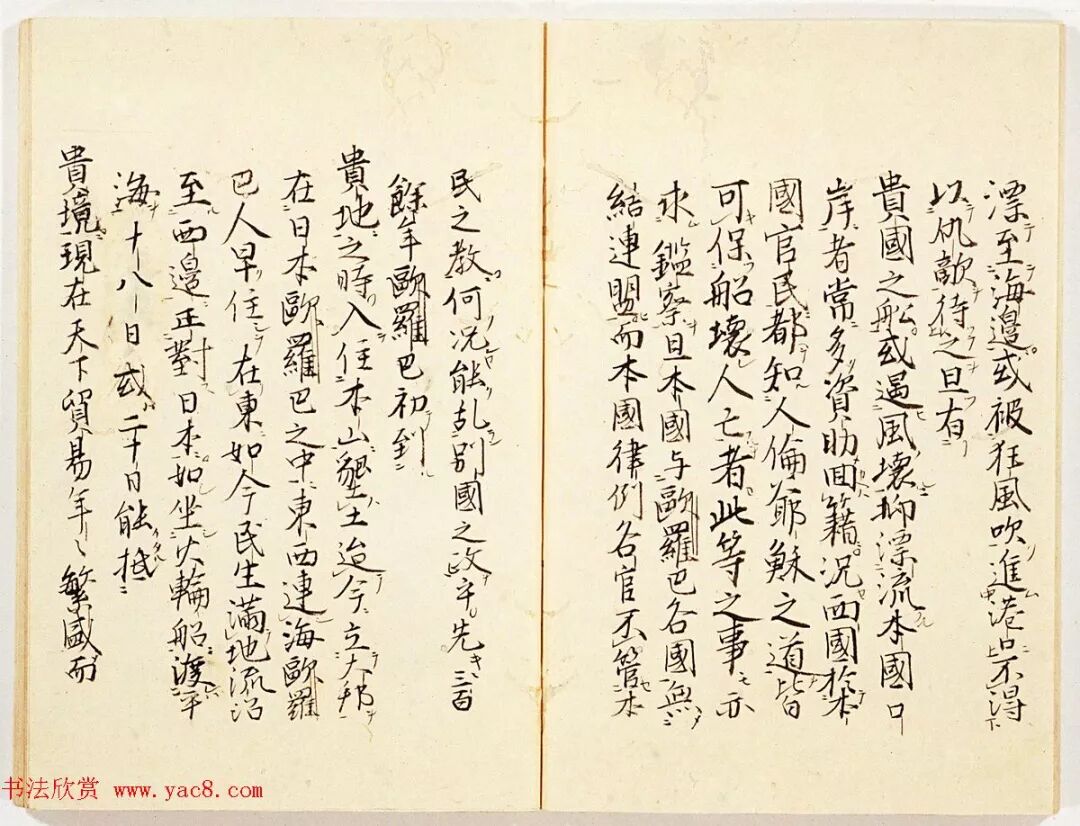 漂至海邉或被狂風吹進港口不淂
以仇敵待之且有
貴國之舩或遇風壞抑漂流本國口
岸者常多資助回籍况西國於本
國官民都知人倫爺穌之道皆
可保船壞人亡者此等之事亦
求鑑察且本國与歐羅巴各國無
結連盟而本國律例各官不管本
民之教何况能乱别國之政乎先三百
餘年歐羅巴初到
貴地之時入住本山墾土迨今立大邦
在日本歐羅巴之中東西連海歐羅
巴人早住在東如今民生滿地流沿
至西邉正對日本如坐火輪船渡平
海十八日或二十日能抵
貴境現在天下貿易年〻繁盛而
书法欣赏 www.yac8.com